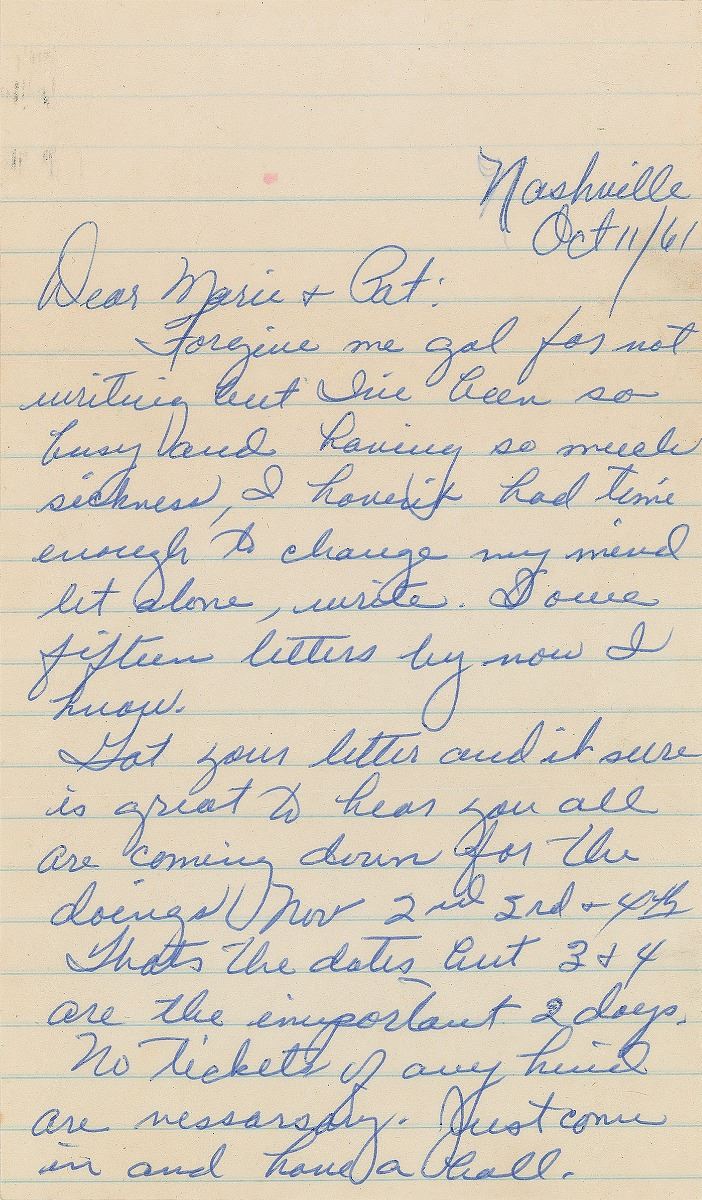 Nashville
Oct 11/61
Dear Marie & Pat:
Forgive me gal for not
writing but I've been so
busy and having so much
sickness, I haven't had time
enough to change my mind
let alone, write. I owe
fifteen letters by now I
know.
Got your letter and it sure
is great to hear you all
are coming down for the
doings Nov 2nd 3rd & 4th
Thats the dates but 3 & 4
are the important 2 days.
No tickets of any kind
are nessarsary. Just come
in and have a ball.